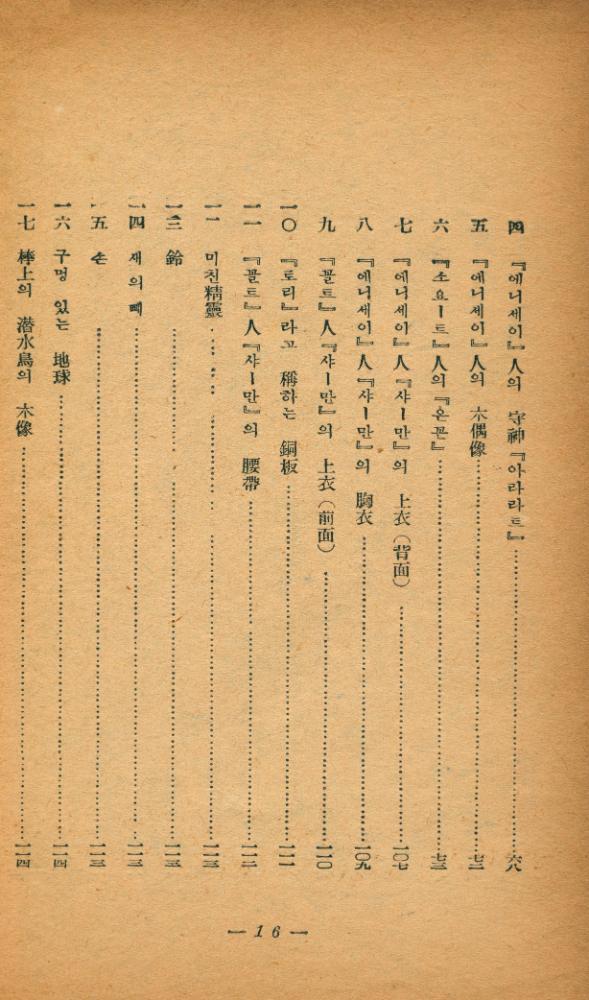 四 『에니세이』人의 守神『아라라트』 六八
五 『에니세이』人의 木偶像 七二
六 『소요ー트』人의 『온꼰』 七三
七 『에니세이』人『샤ー만』의 上衣(背面) 一〇七
八 『에니세이』人『샤ー만』의 胸衣 一〇九
九 『꼴트』人『샤ー만』의 上衣(前面) 一一〇
一〇 『토리』라고 稱하는 銅板 一一一
一一 『꼴트』人『샤ー만』의 腰帶 一一二
미친精靈 一一三
一三 鈴 一一三
一四 새의 뼈 一一三
一五 손 一一三
一六 구멍 있는 地球 一一四
一七 棒上의 潜水鳥의 木像 一一四
— 16 —